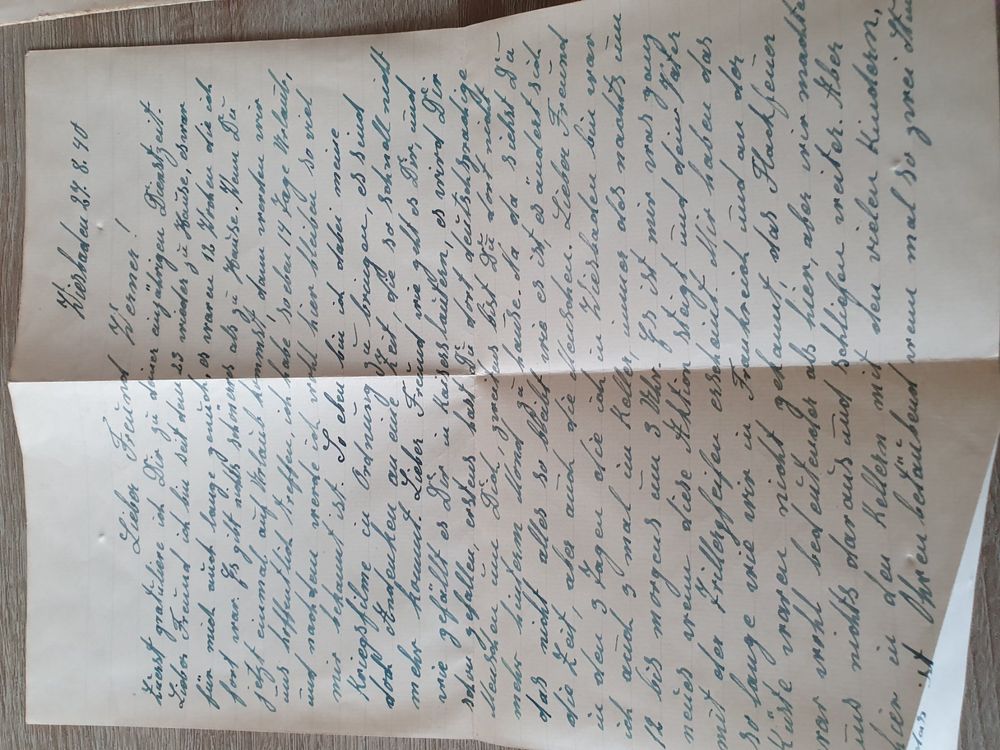 Wiesbaden 27. 8. 40
Lieber Freund Werner!
Zuerst gratuliere ich Dir zu deiner einjährigen Dienstzeit.
Lieber Freund ich bin seit dem 23 wieder zu Hause, es war
für mich auch lange genug, es waren 12 Wochen die ich
fort war. Es gibt nichts schöneres als zu Hause. Wenn Du
jetzt einmal auf Urlaub kommst, dann werden wir
uns hoffentlich treffen, ich habe soeben 14 Tage Urlaub,
und nachdem werde ich wohl hier bleiben so viel
mir bekannt ist. So eben bin ich dabei meine
Kriegsfilme in Ordnung zu bringen, es sind
doch Andenken an eine Zeit, die so schnell nicht
mehr kommt. Lieber Freund wie geht es Dir, und
wie gefällt es Dir in Kaiserslautern, es wird Dir
schon gefallen, erstens hast Du dort deutschsprachige
Menschen um Dich, zweitens bist Du dort nicht
mehr hinterm Mond zu hause. Na da siehst Du
das nicht alles so bleibt wie es ist, es ändert sich
die Zeit, aber auch die Menschen. Lieber Freund
in den 3 Tagen die ich in Wiesbaden bin war
ich auch 3 mal im Keller, immer das nachts um
12 bis morgens um 3 Uhr. Es ist mir was ganz
neues wenn diese Aktion steigt und dein Vater
mit der Trillerpfeifen erscheint. Wir haben das
so lange wie wir in Frankreich und an der
Küste waren nicht gekannt, das Flackfeuer
war wohl bedeutender als hier, aber wir machten
uns nichts daraus und schliefen weiter. Aber
hier in den Kellern mit den vielen Kindern,
ist Ohrenbetäubend wenn mal so zwei Stun